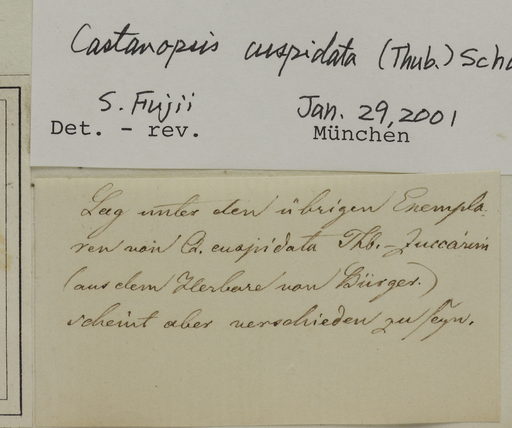 Castanopsis cuspidata (Thub.) Scho
S. Fujii Jan. 29, 2001
Det. - rev. München
Lag unter den übrigen Exempla-
ren von Q. cuspidata Thb. - Zuccarini
(aus dem Herbare von Bürger.)
scheint aber verschieden zu seyn.